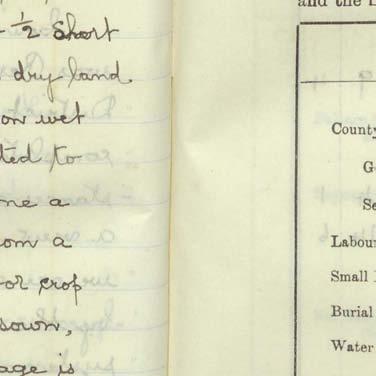 - ½ Short
dry land.
on wet
ted to
me a
om a
or crop
sown,
age is
and the
County
G
Se
Labou
Small
Burial
Water